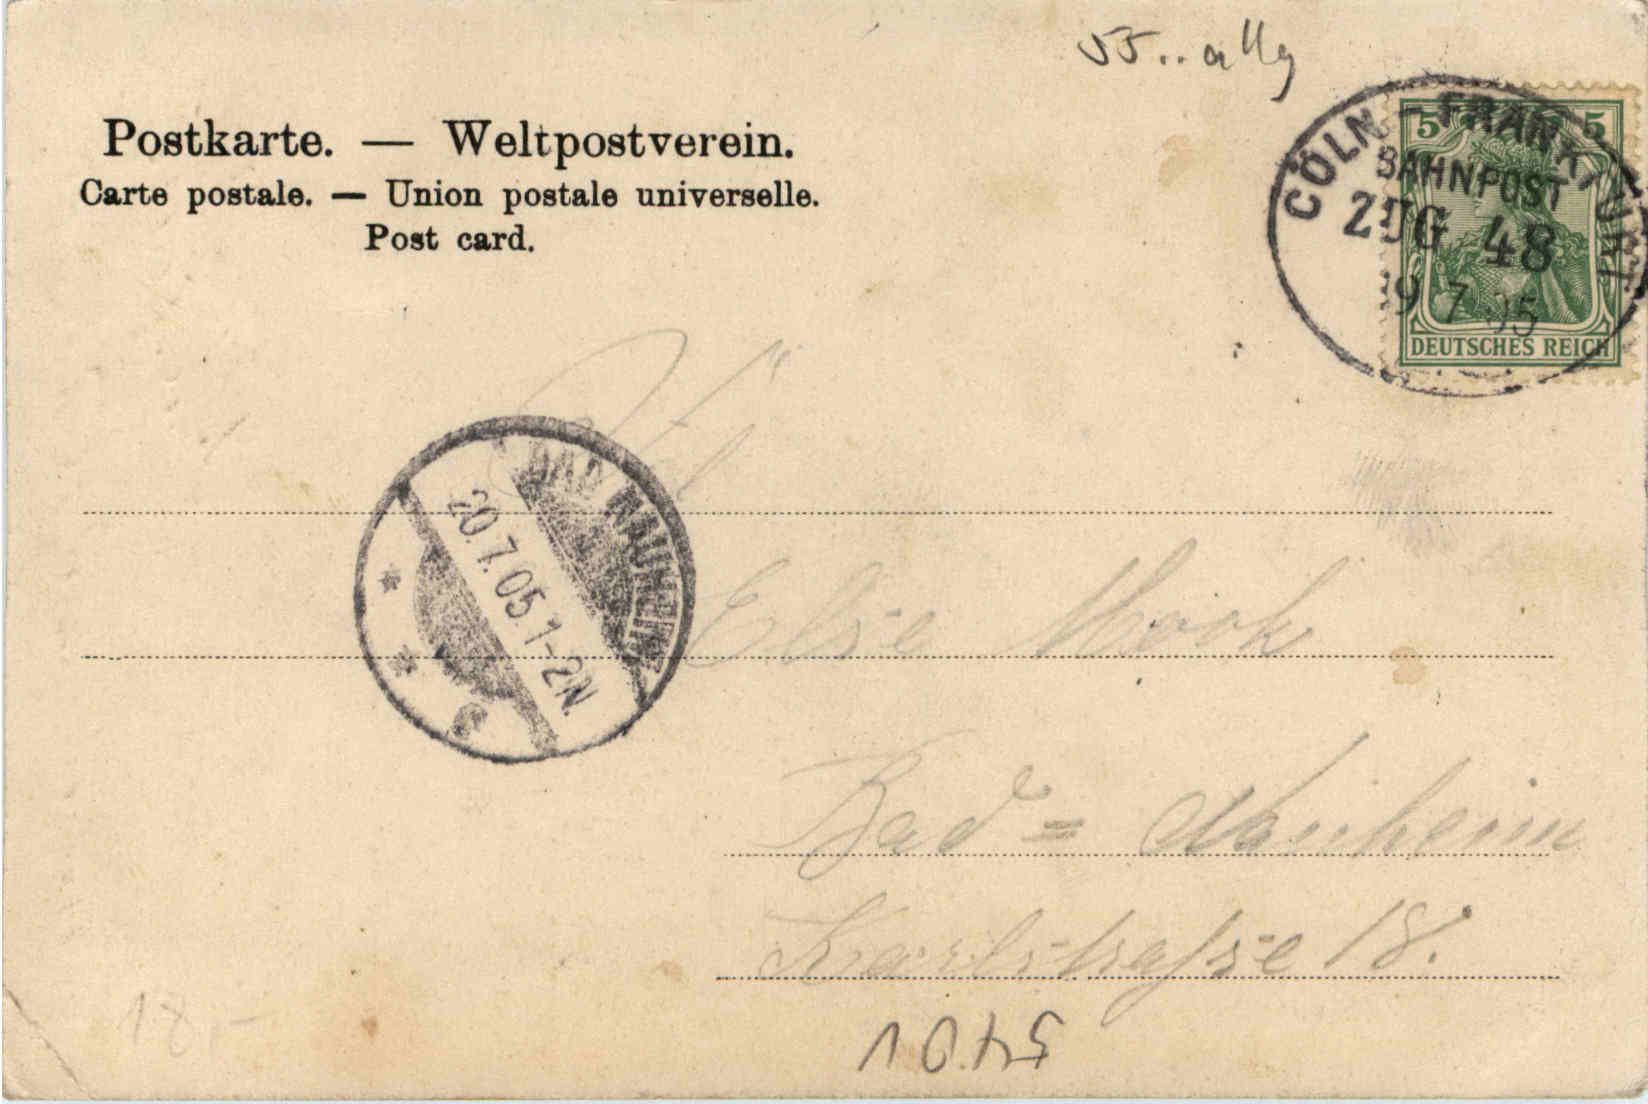 55..
Postkarte. — Weltpostverein.
Carte postale. — Union postale universelle.
Post card.
CÖLN – FRANKFURT
BAHNPOST
ZUG 48
19 7 05
5 5
DEUTSCHES REICH
BAD NAUHEIM
20.7.05.1-2N.
* *
Else
Bad = Nauheim
Karlstraße 18.
18,-